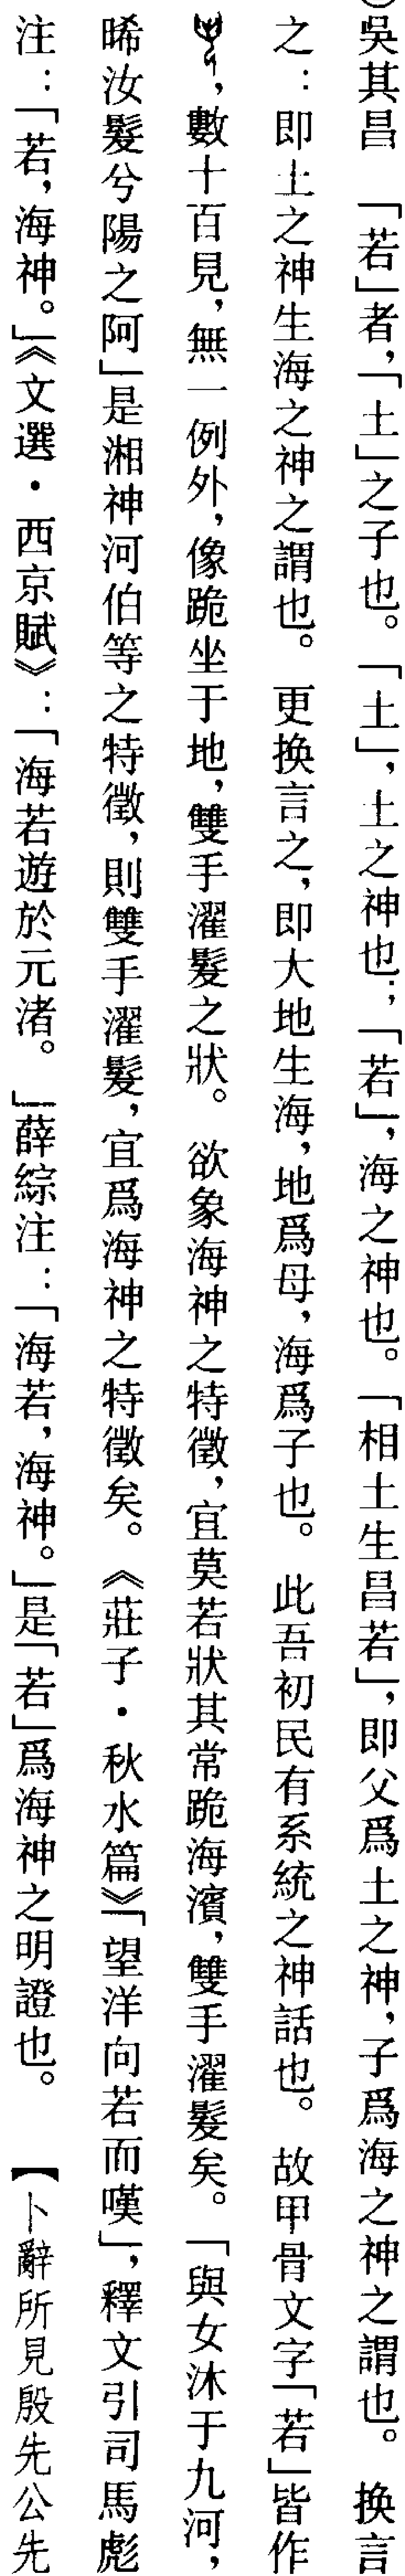 吳其昌　「若」者，「土」之子也。「土」，土之神也；「若」，海之神也。「相土生昌若」，即父爲土之神，子爲海之神之謂也。換言
之：即土之神生海之神之謂也。更換言之，即大地生海，地爲母，海爲子也。此吾初民有系統之神話也。故甲骨文字「若」皆作
，數十百見，無一例外，像跪坐于地，雙手濯髮之狀。欲象海神之特徵，宜莫若狀其常跪海濱，雙手濯髮矣。「與女沐于九河，
晞汝髮兮陽之阿」是湘神河伯等之特徵，則雙手濯髮，宜爲海神之特徵矣。《莊子・秋水篇》「望洋向若而嘆」，釋文引司馬彪
注：「若，海神。」《文選・西京賦》：「海若遊於元渚。」薛綜注：「海若，海神。」是「若」爲海神之明證也。　【卜辭所見殷先公先